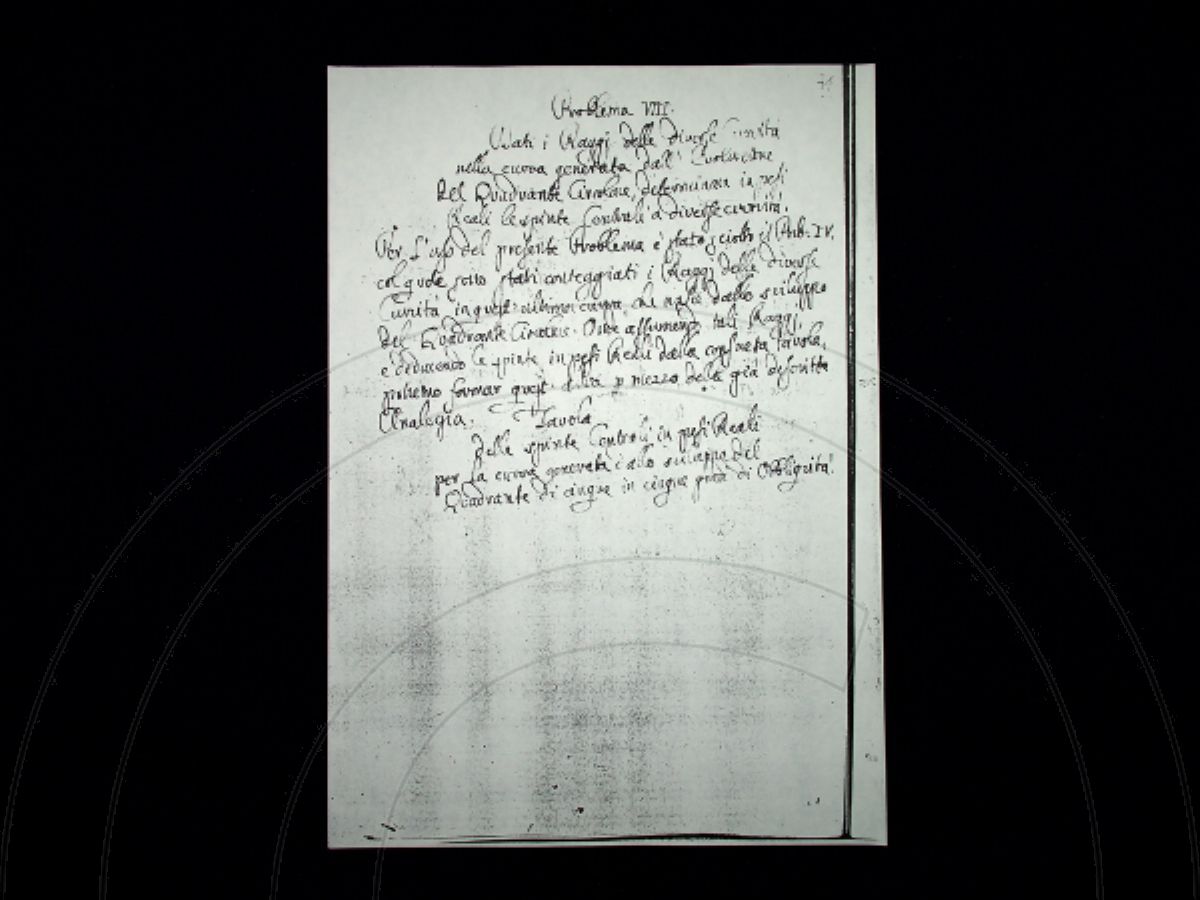 Problema VII.
Dati i Raggi delle diverse Curvità
nella curva generata dall' Evoluzione
del Quadrante Circolare, determinare in pesi
Reali le spinte Centrali a diverse curvità.
Per l'uso del presente Problema è stato sciolto il Prob. IV.
col quale sono stati conteggiati i Raggi delle diverse
Curvità in quest' ultima curva, che nasce dallo sviluppo
del Quadrante Circolare. Onde assumendo tali Raggi,
e deducendo le spinte in pesi Reali dalla consueta Tavola,
potremo formar quest' altra p mezzo della già descritta
Analogia.
Tavola
Delle spinte Centrali in pesi Reali
per la curva generata dallo sviluppo del
Quadrante di cinque in cinque gradi di Obbliquità.